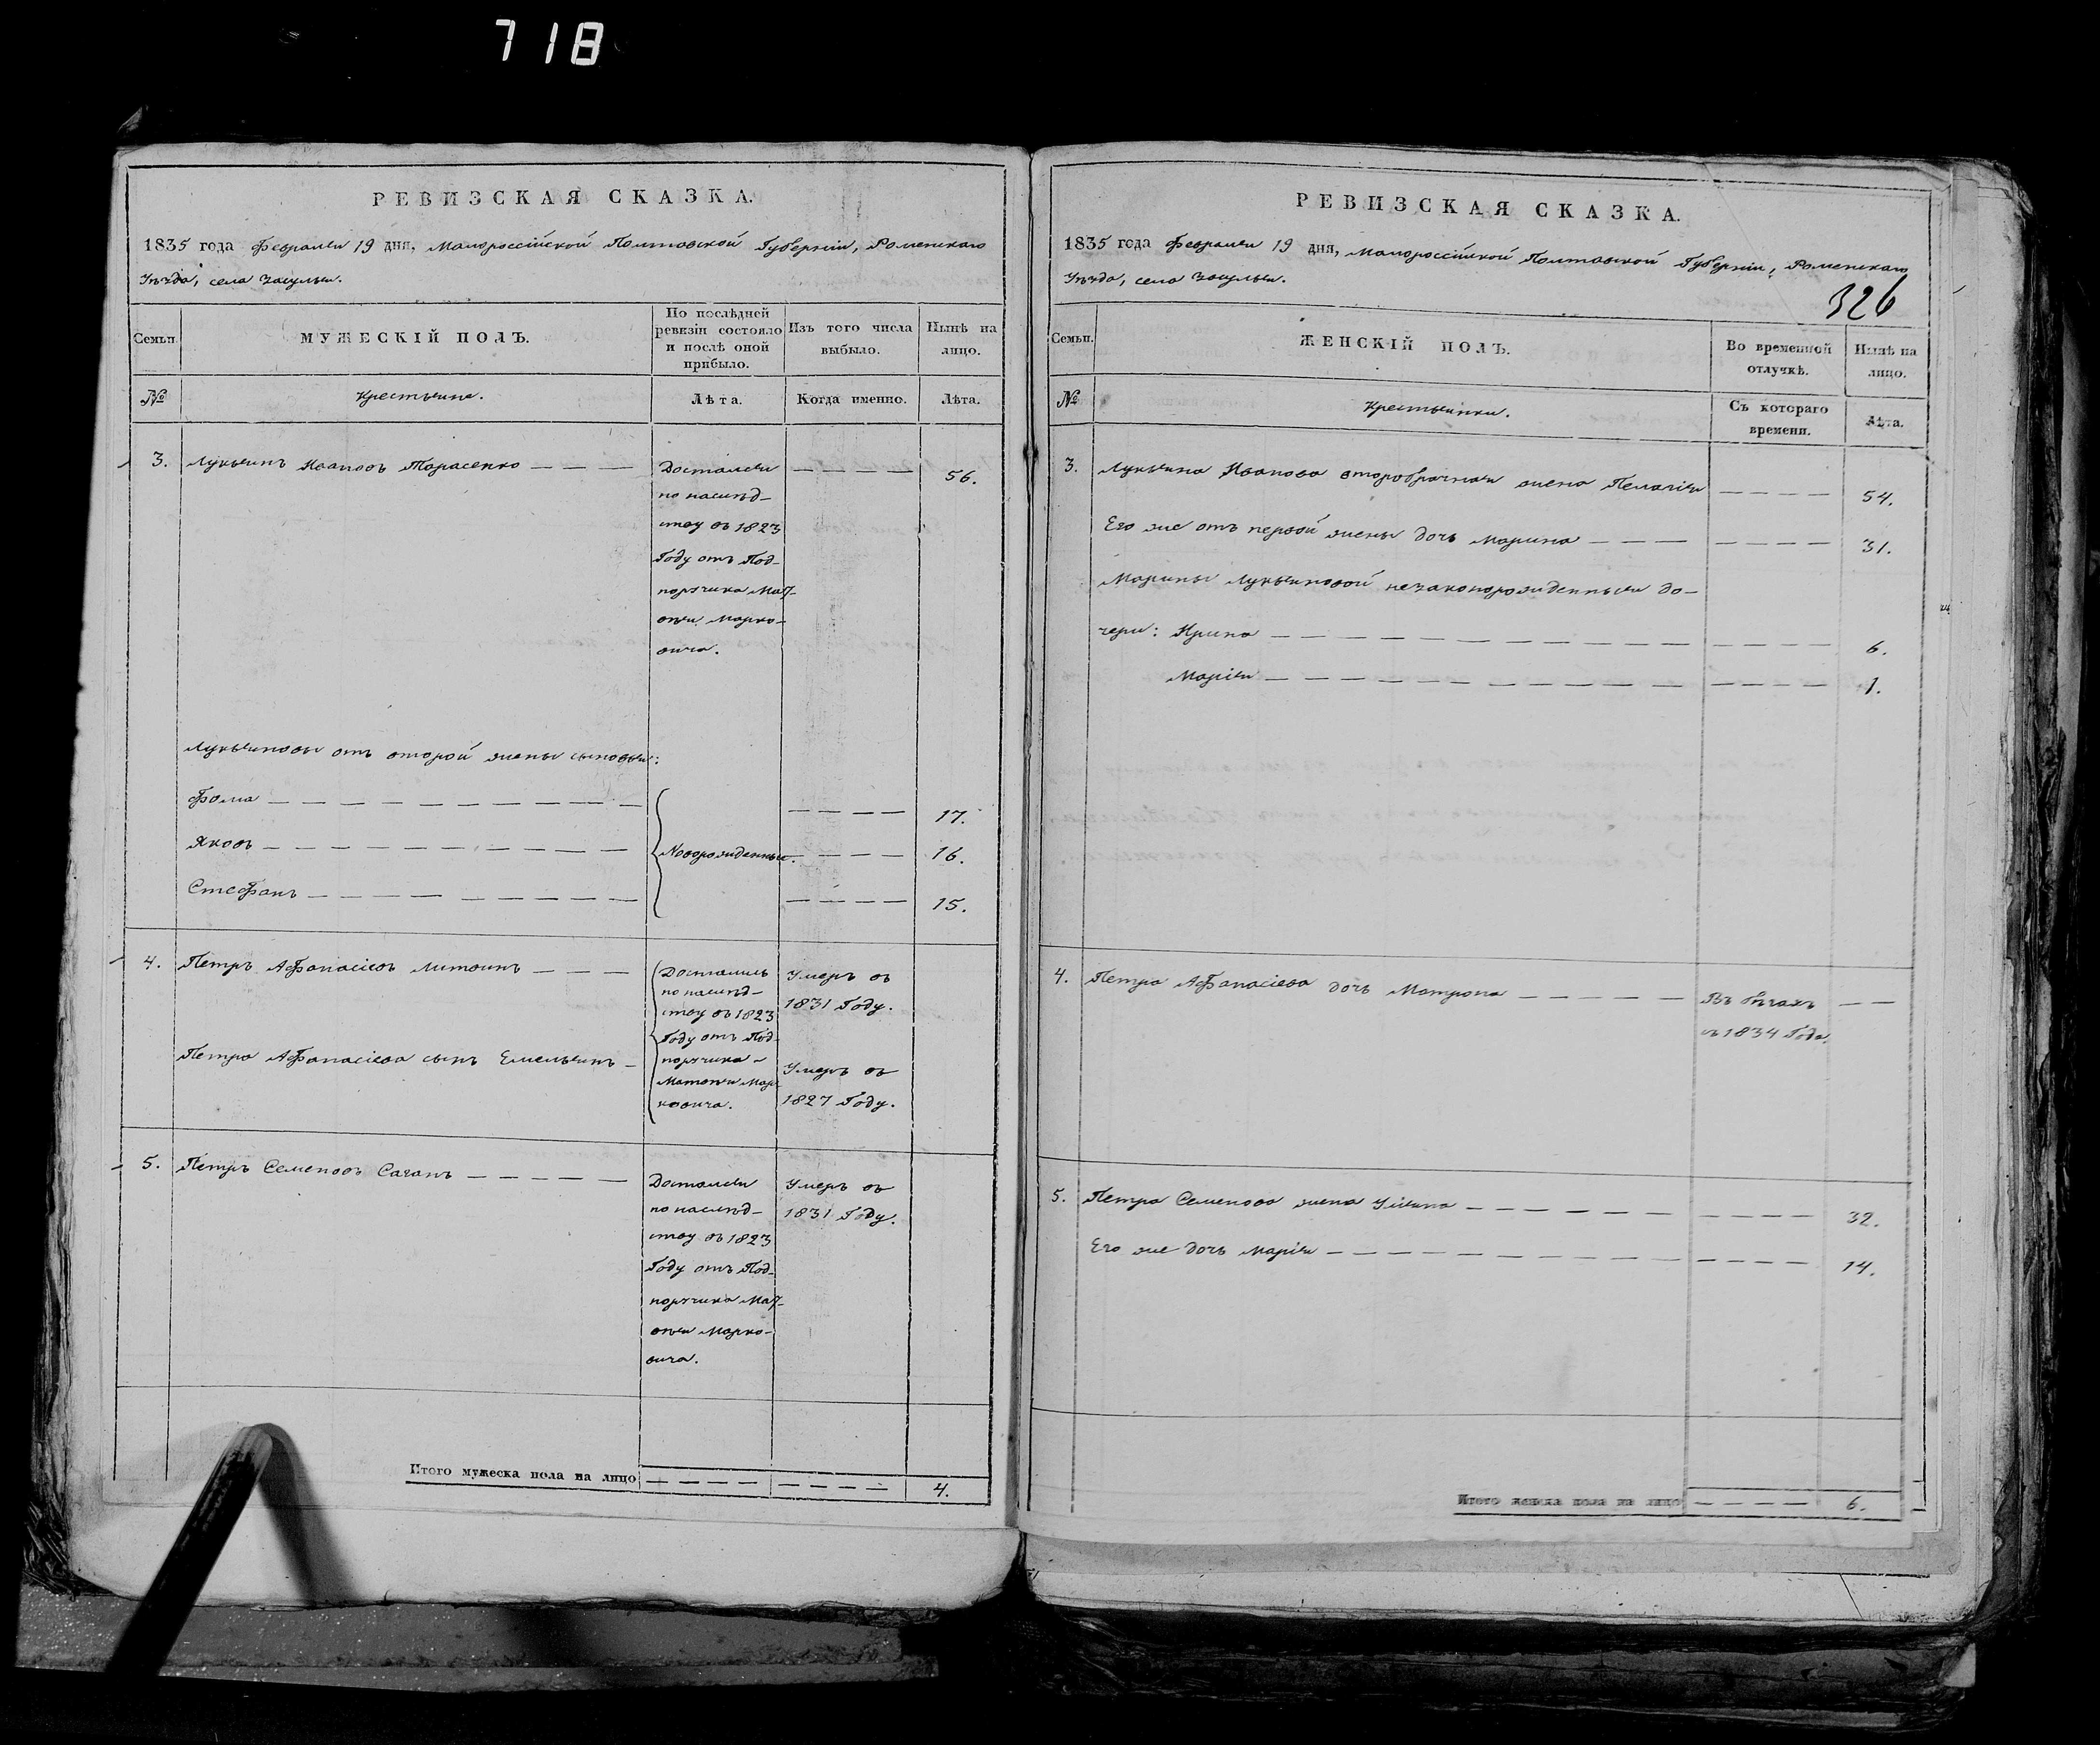 718
РЕВИЗСКАЯ СКАЗКА.
1835 года Февраля 19 дня, Малороссійской Полтавской Губерніи, Роменскаго
Уѣзда, села Засулья.
Семьи.
МУЖЕСКІЙ ПОЛЪ.
По послѣдней
ревизіи состояло
и послѣ оной
прибыло.
Изъ того числа
выбыло.
Нынѣ на
лицо.
№
Крестьяне.
Лѣта.
Когда именно.
Лѣта.
3. Лукьянъ Ивановъ Тарасенко — — —
Достался
по наслѣд-
ству въ 1823
Году отъ Под-
поручика Мат-
вѣя Марко-
вича.
— — — —
56.
Лукьяновы отъ второй жены сыновья:
Фома — — — — 17.
Яковъ — — — — 16.
Стефанъ — — — — 15.
Новорожденные.
4. Петръ Афанасіевъ Литвинъ — — —
Умеръ въ
1831 Году.
Достались
по наслѣд-
ству въ 1823
Году отъ Под-
поручика
Матвѣя Мар-
ковича.
Петра Афанасіева сынъ Емельянъ —
Умеръ въ
1827 Году.
5. Петръ Семеновъ Саганъ — — — — —
Достался
по наслѣд-
ству въ 1823
Году отъ Под-
поручика Мат-
вѣя Марко-
вича.
Умеръ въ
1831 Году.
Итого мужеска пола на лицо — — — — — — — — 4.
РЕВИЗСКАЯ СКАЗКА.
1835 года Февраля 19 дня, Малороссійской Полтавской Губерніи, Роменскаго
Уѣзда, села Засулья.
326
Семьи.
ЖЕНСКІЙ ПОЛЪ.
Во временной
отлучкѣ.
Нынѣ на
лицо.
№
Крестьянки.
Съ котораго
времени.
Лѣта.
3. Лукьяна Иванова второбрачная жена Пелагія — — — — 54.
Его же отъ первой жены дочь Марина — — — — — — — 31.
Марины Лукьяновой незаконорожденныя до-
чери: Ирина — — — — 6.
Марія — — — — 1.
4. Петра Афанасіева дочь Матрона — — — — —
Въ бѣгахъ — —
съ 1834 Года.
5. Петра Семенова жена Ульяна — — — — 32.
Его же дочь Марія — — — — 14.
Итого женска пола на лицо — — — — 6.